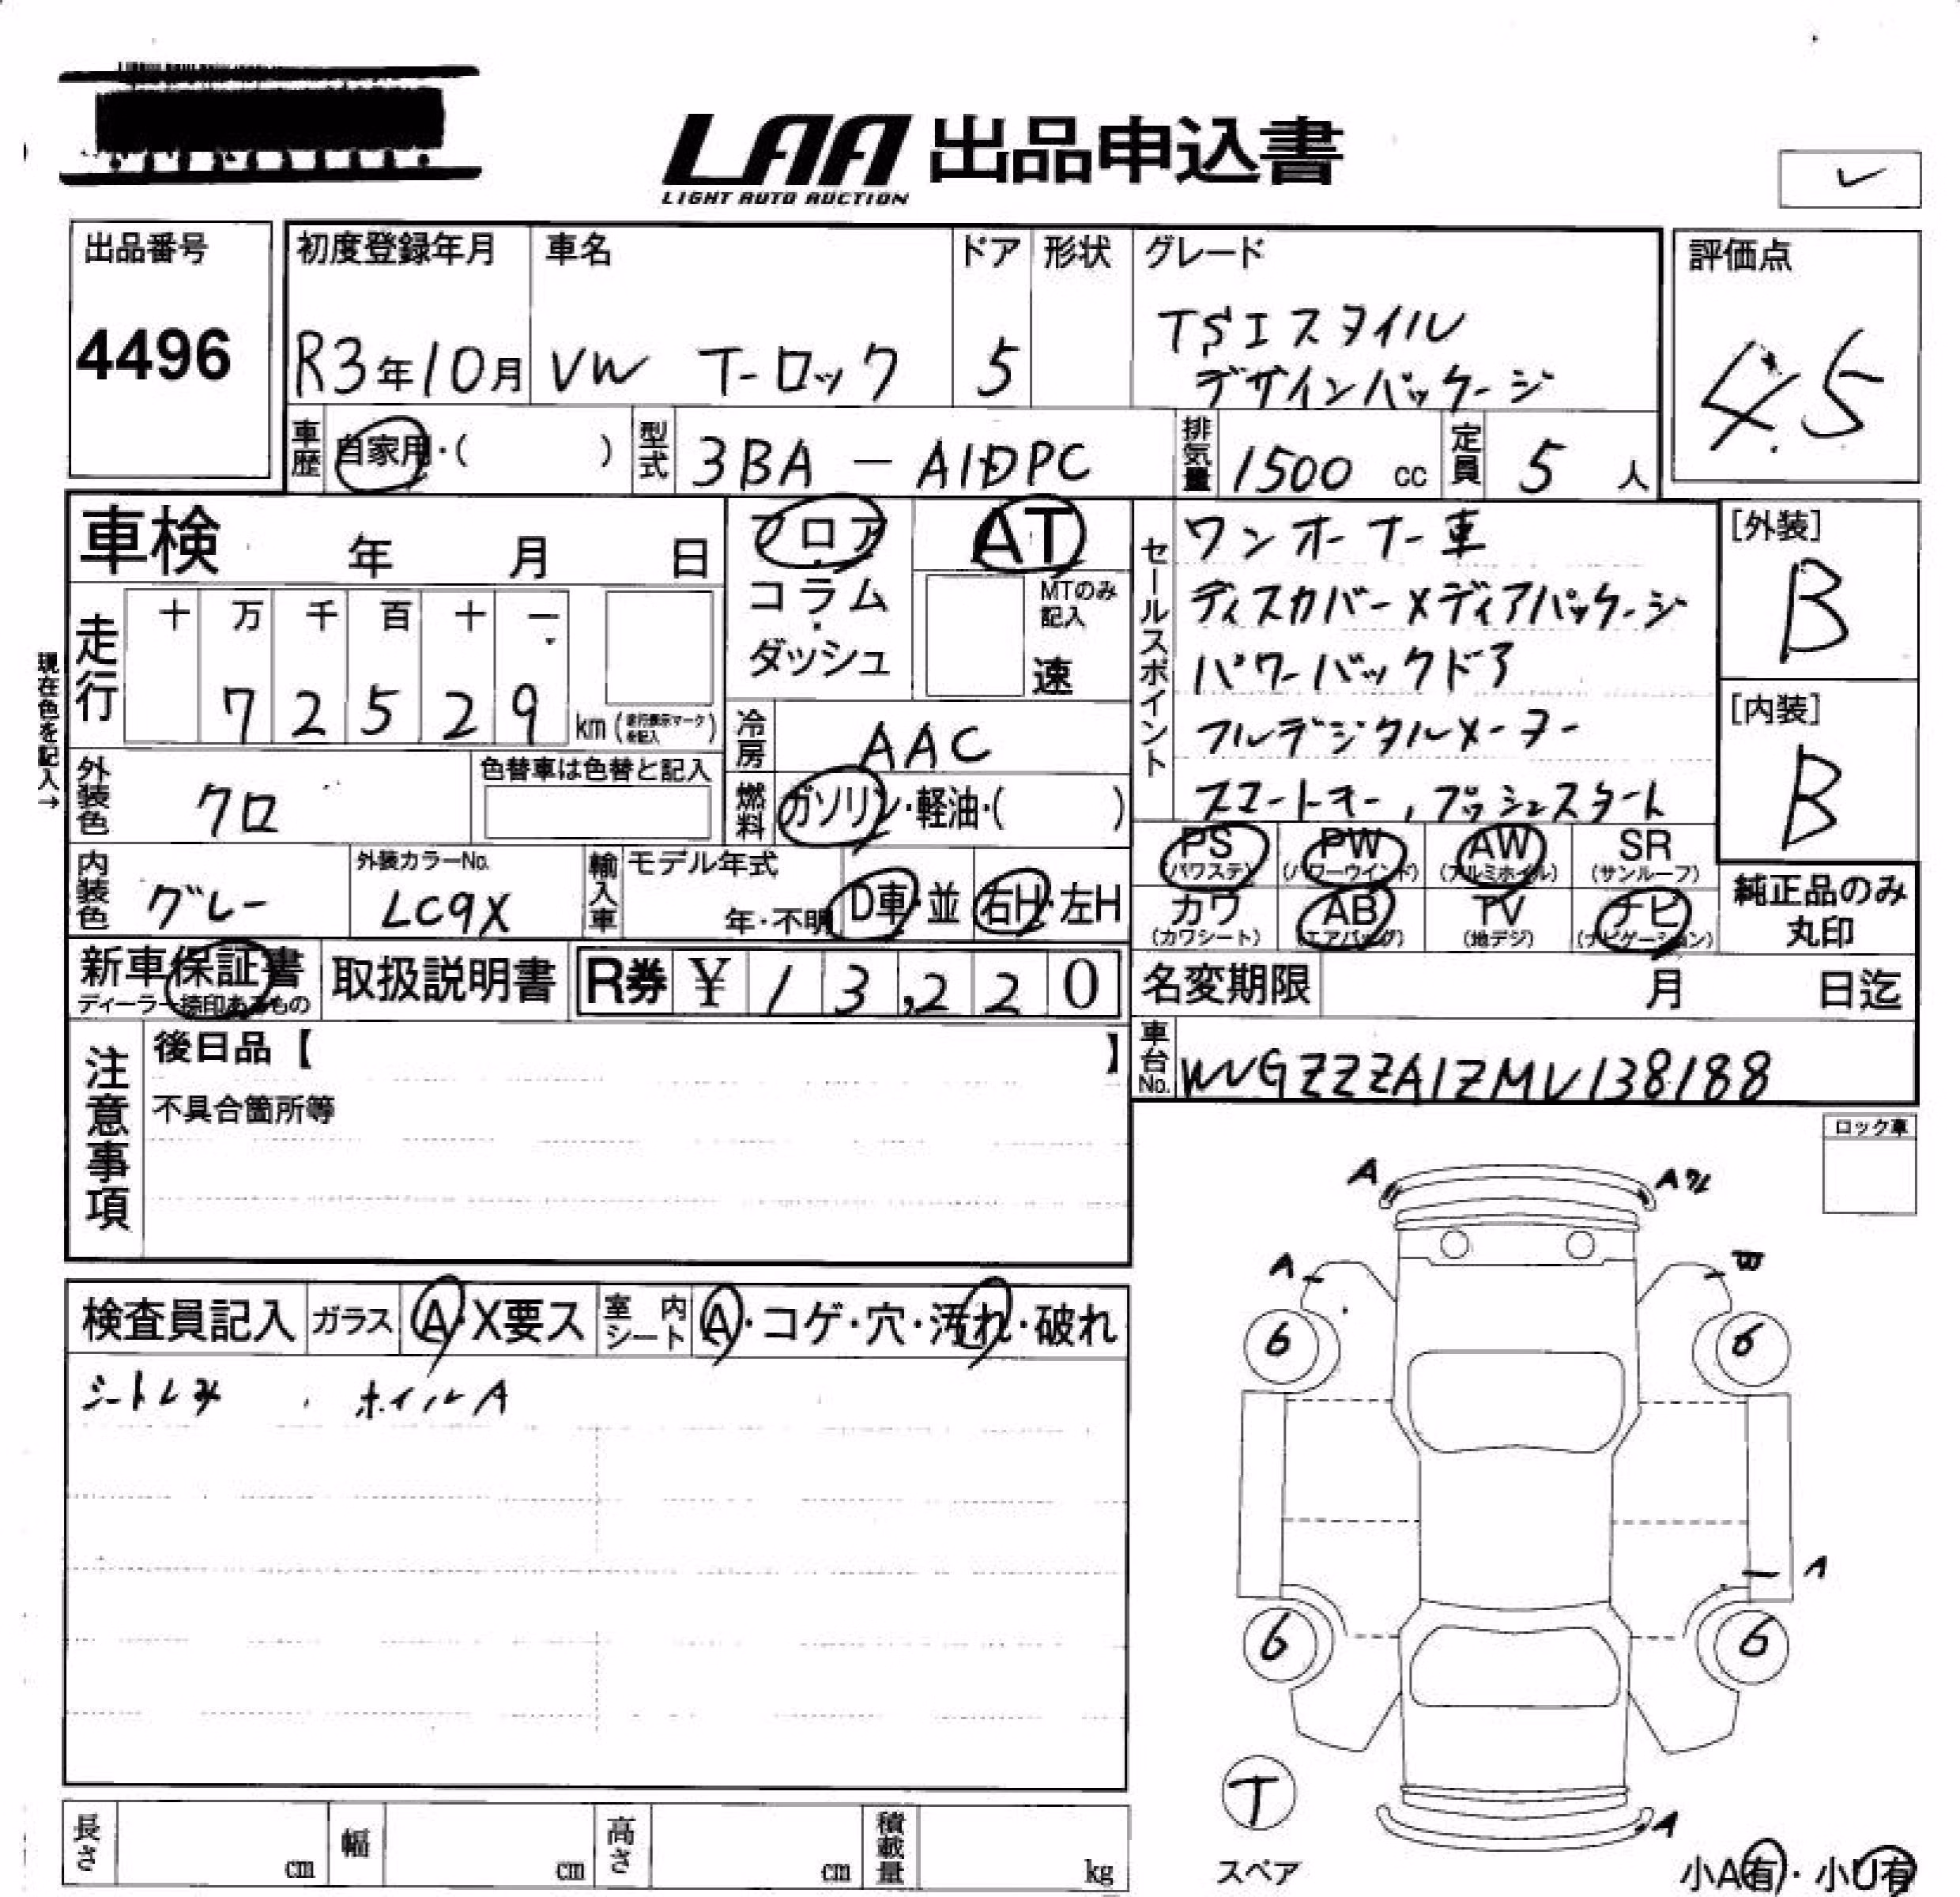 LAA 出品申込書
LIGHT AUTO AUCTION
出品番号
4496
初度登録年月
R3年10月
車名
VW T-ロック
ドア
5
形状
グレード
TSIスタイル
デザインパッケージ
評価点
4.5
車歴
自家用・( )
型式
3BA - A1DPC
排気量
1500 cc
定員
5 人
車検 年 月 日
現在色を記入→
走行
十 万 千 百 十 一
7 2 5 2 9 km (走行表示マークを記入)
フロア
コラム
ダッシュ
AT
MTのみ記入
速
冷房
AAC
燃料
ガソリン・軽油・( )
外装色
クロ
色替車は色替と記入
内装色
グレー
外装カラーNo.
LC9X
輸入車
モデル年式
年・不明
D車・並
右H・左H
セールスポイント
ワンオーナー車
ディスカバーメディアパッケージ
パワーバックドア
フルデジタルメーター
スマートキー,プッシュスタート
[外装]
B
[内装]
B
PS (パワステ)
PW (パワーウインド)
AW (アルミホイル)
SR (サンルーフ)
カワ (カワシート)
AB (エアバッグ)
TV (地デジ)
ナビ (ナビゲーション)
純正品のみ
丸印
新車保証書
ディーラー捺印あるもの
取扱説明書
R券 ¥ 13,220
名変期限 月 日迄
車台No.
WVGZZZA1ZMV138188
注意事項
後日品【 】
不具合箇所等
ロック車
検査員記入
ガラス
A・X要ス
室内シート
A・コゲ・穴・汚れ・破れ
シートシミ , ホイルA
A
A
A
6
6
A
6
6
T
スペア
A
小A有・小U有
長さ cm
幅 cm
高さ cm
積載量 kg